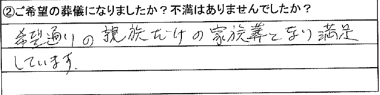 ②ご希望の葬儀になりましたか？不満はありませんでしたか？
希望通りの親族だけの家族葬となり満足
しています。